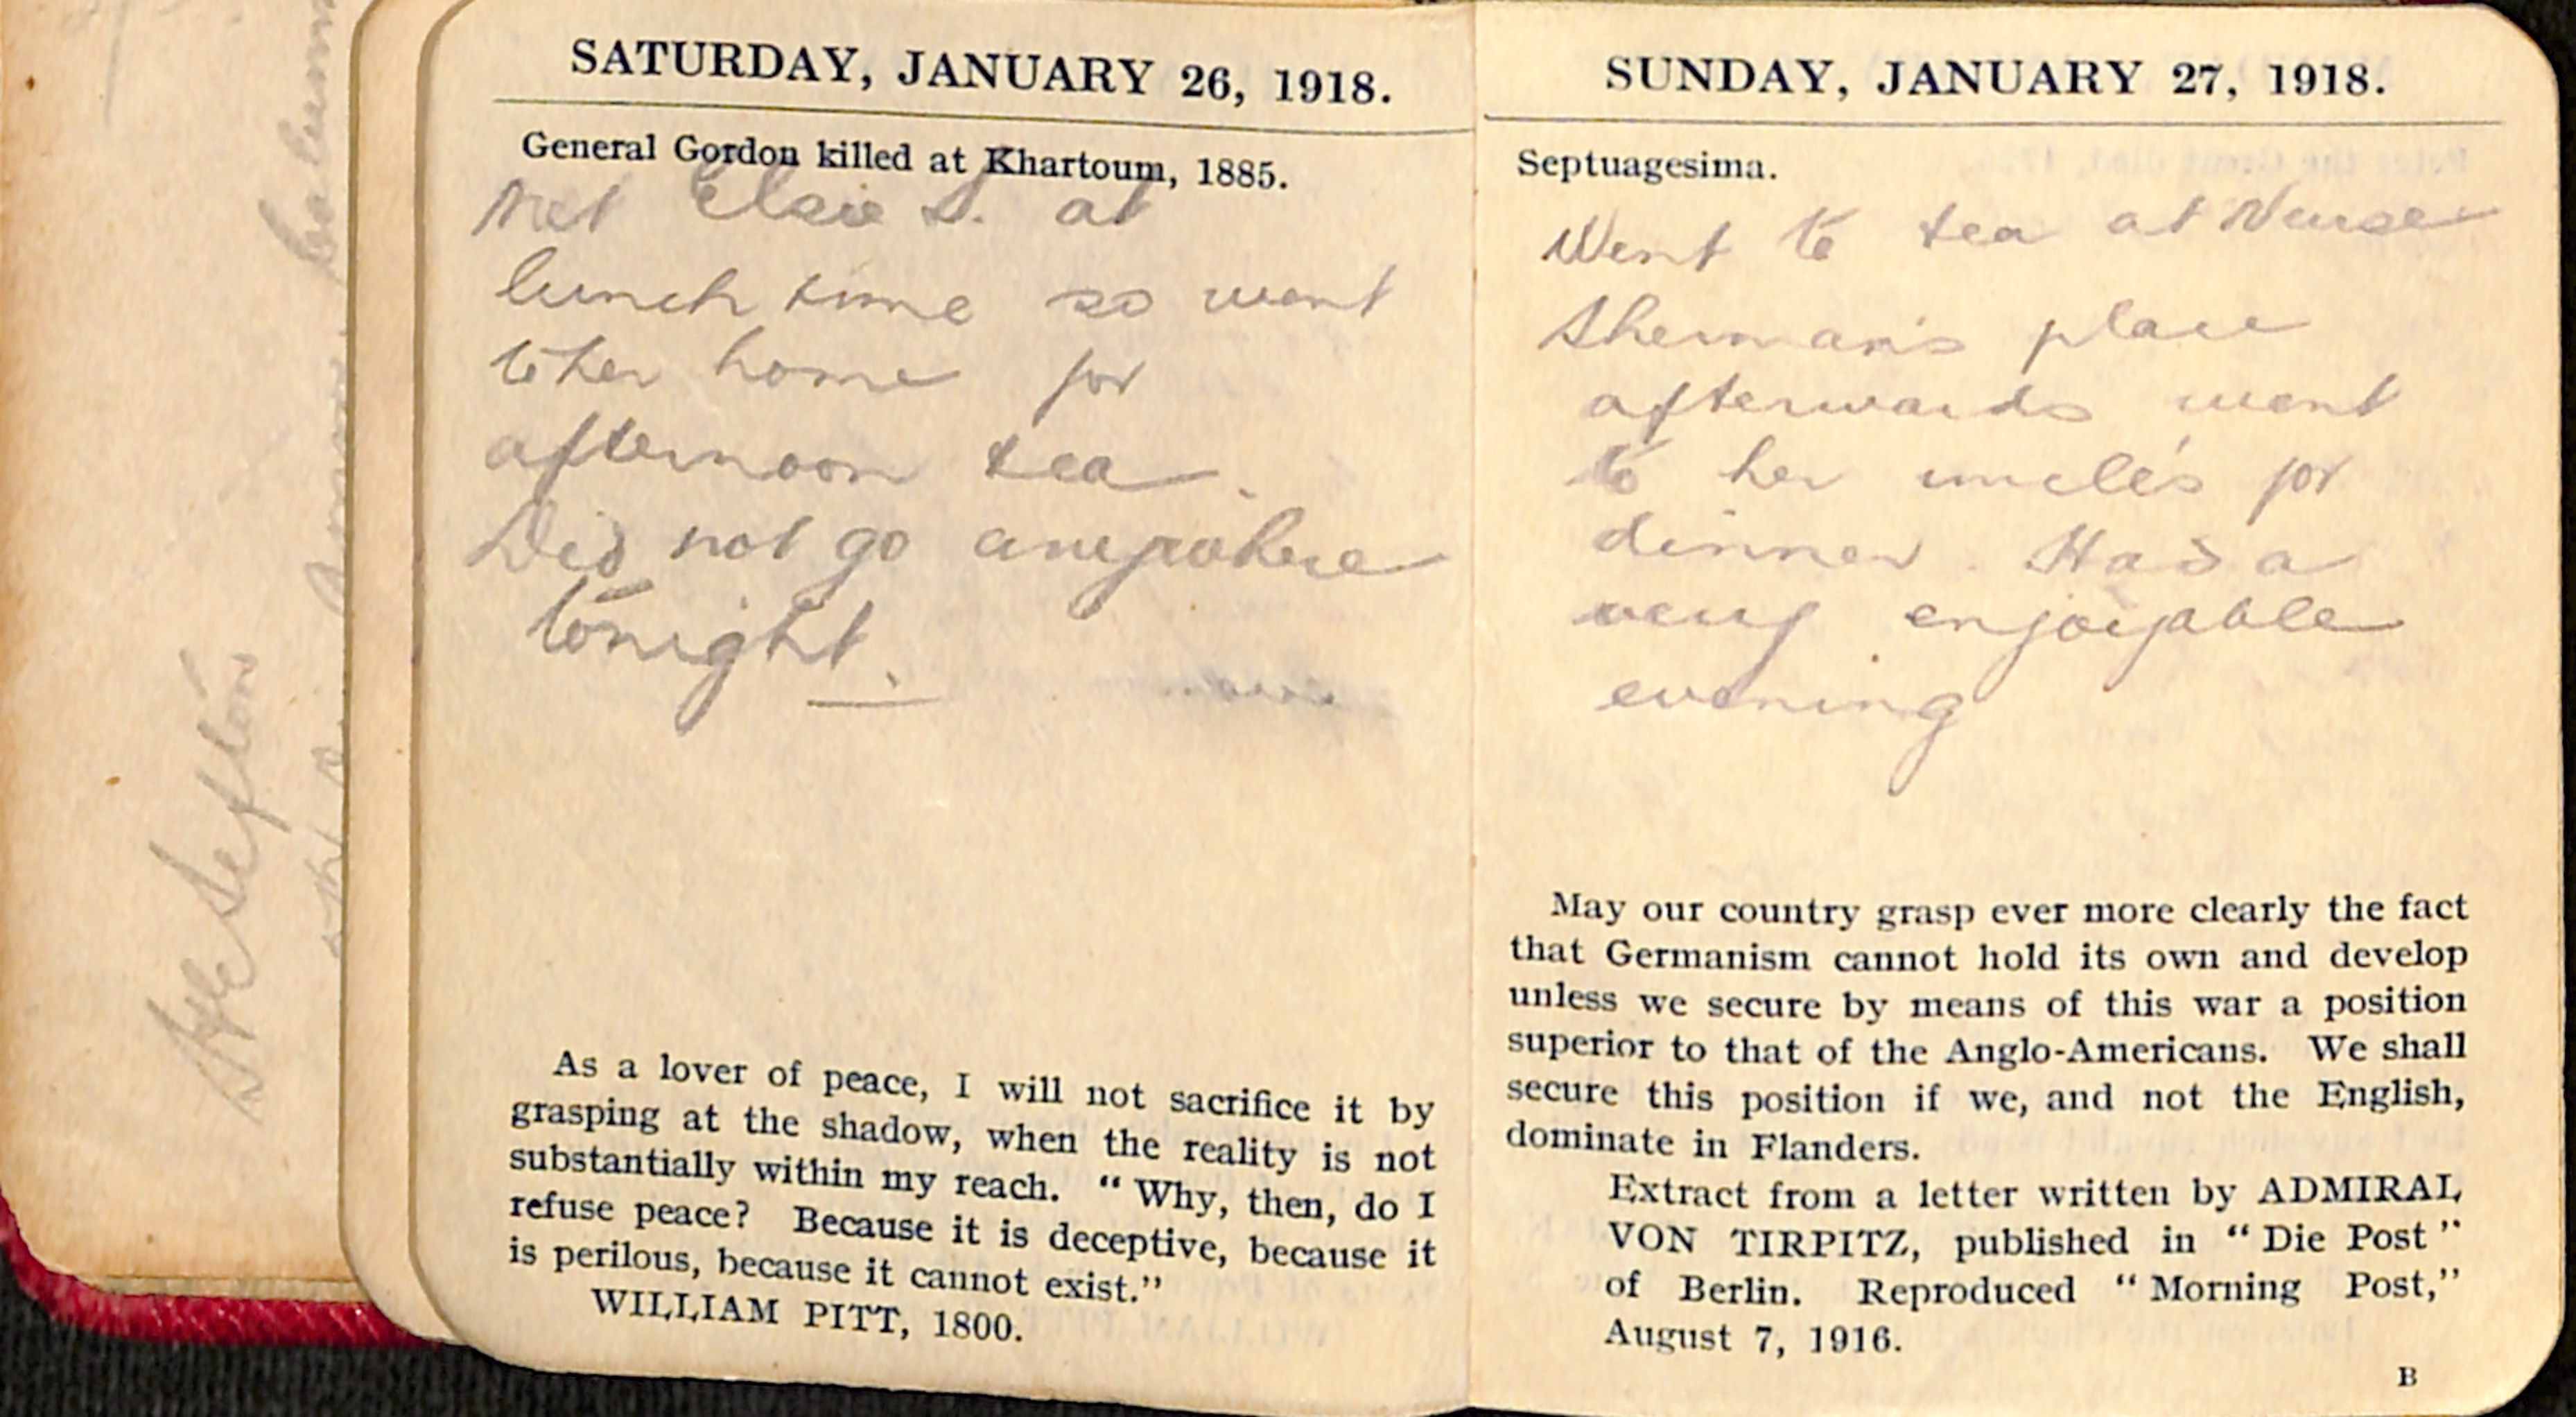 SATURDAY, JANUARY 26, 1918.
General Gordon killed at Khartoum, 1885.
Met Elsie S. at
lunch time so went
to her home for
afternoon tea.
Did not go anywhere
tonight.
As a lover of peace, I will not sacrifice it by
grasping at the shadow, when the reality is not
substantially within my reach. “Why, then, do I
refuse peace? Because it is deceptive, because it
is perilous, because it cannot exist.”
WILLIAM PITT, 1800.
SUNDAY, JANUARY 27, 1918.
Septuagesima.
Went to tea at Nurse
Sherman's place
afterwards went
to her uncle's for
dinner. Had a
very enjoyable
evening
May our country grasp ever more clearly the fact
that Germanism cannot hold its own and develop
unless we secure by means of this war a position
superior to that of the Anglo-Americans. We shall
secure this position if we, and not the English,
dominate in Flanders.
Extract from a letter written by ADMIRAL
VON TIRPITZ, published in “Die Post”
of Berlin. Reproduced “Morning Post,”
August 7, 1916.
B
Sefton